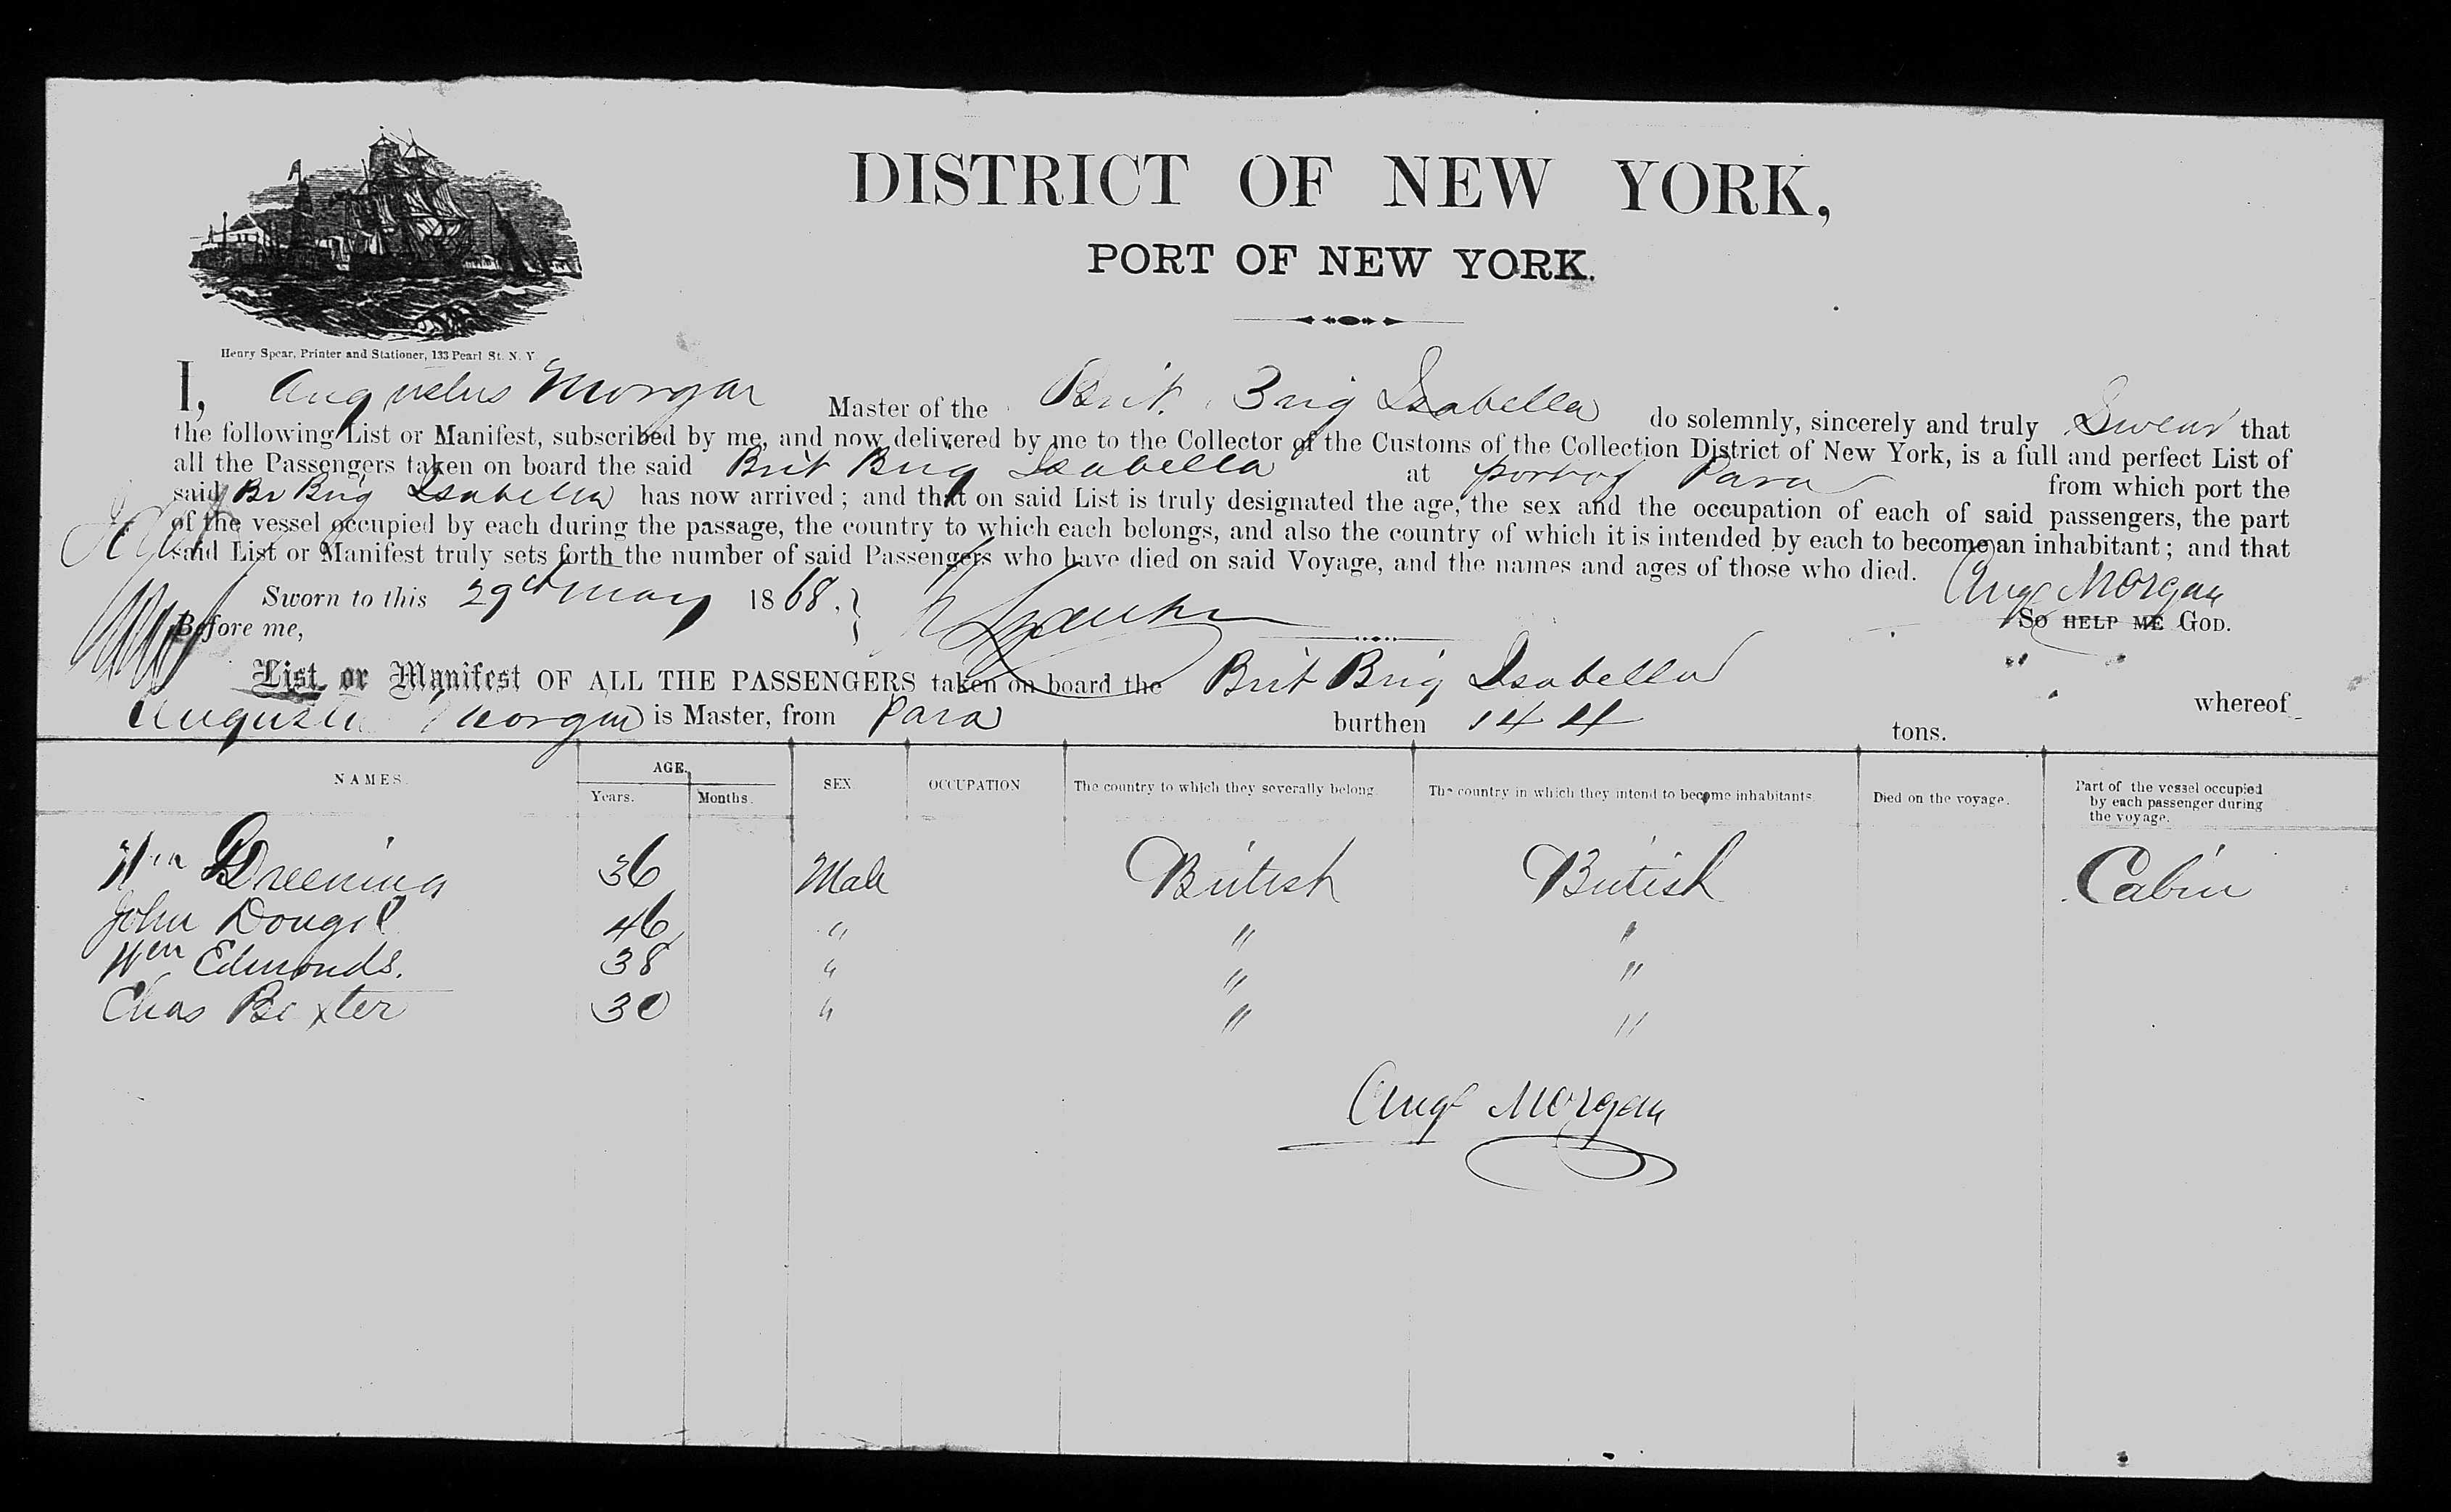 DISTRICT OF NEW YORK,
PORT OF NEW YORK.
Henry Spear, Printer and Stationer, 133 Pearl St. N. Y.
I, Augustus Morgan Master of the Brit. Brig Isabella do solemnly, sincerely and truly Swear that
the following List or Manifest, subscribed by me, and now delivered by me to the Collector of the Customs of the Collection District of New York, is a full and perfect List of
all the Passengers taken on board the said Brit Brig Isabella at port of Para from which port the
said Br Brig Isabella has now arrived; and that on said List is truly designated the age, the sex and the occupation of each of said passengers, the part
of the vessel occupied by each during the passage, the country to which each belongs, and also the country of which it is intended by each to become an inhabitant; and that
said List or Manifest truly sets forth the number of said Passengers who have died on said Voyage, and the names and ages of those who died.
Augs Morgan
Sworn to this 29th May 1868.
Before me,
SO HELP ME GOD.
List or Manifest OF ALL THE PASSENGERS taken on board the Brit Brig Isabella whereof
Augustus Morgan is Master, from Para burthen 144 tons.
NAMES. AGE. SEX. OCCUPATION The country to which they severally belong. The country in which they intend to become inhabitants. Died on the voyage. Part of the vessel occupied by each passenger during the voyage.
Years. Months.
Wm 36 Male British British Cabin
John Dougil 46 " " "
Wm Edmonds. 38 " " "
Chas Bexter 30 " " "
Augs Morgan